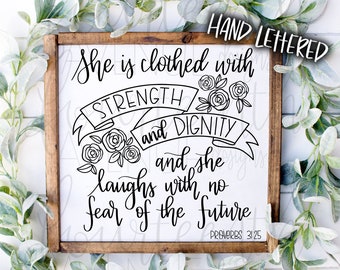 HAND LETTERED
She is clothed with
STRENGTH
and DIGNITY
and she
laughs with no
fear of the future
PROVERBS 31:25